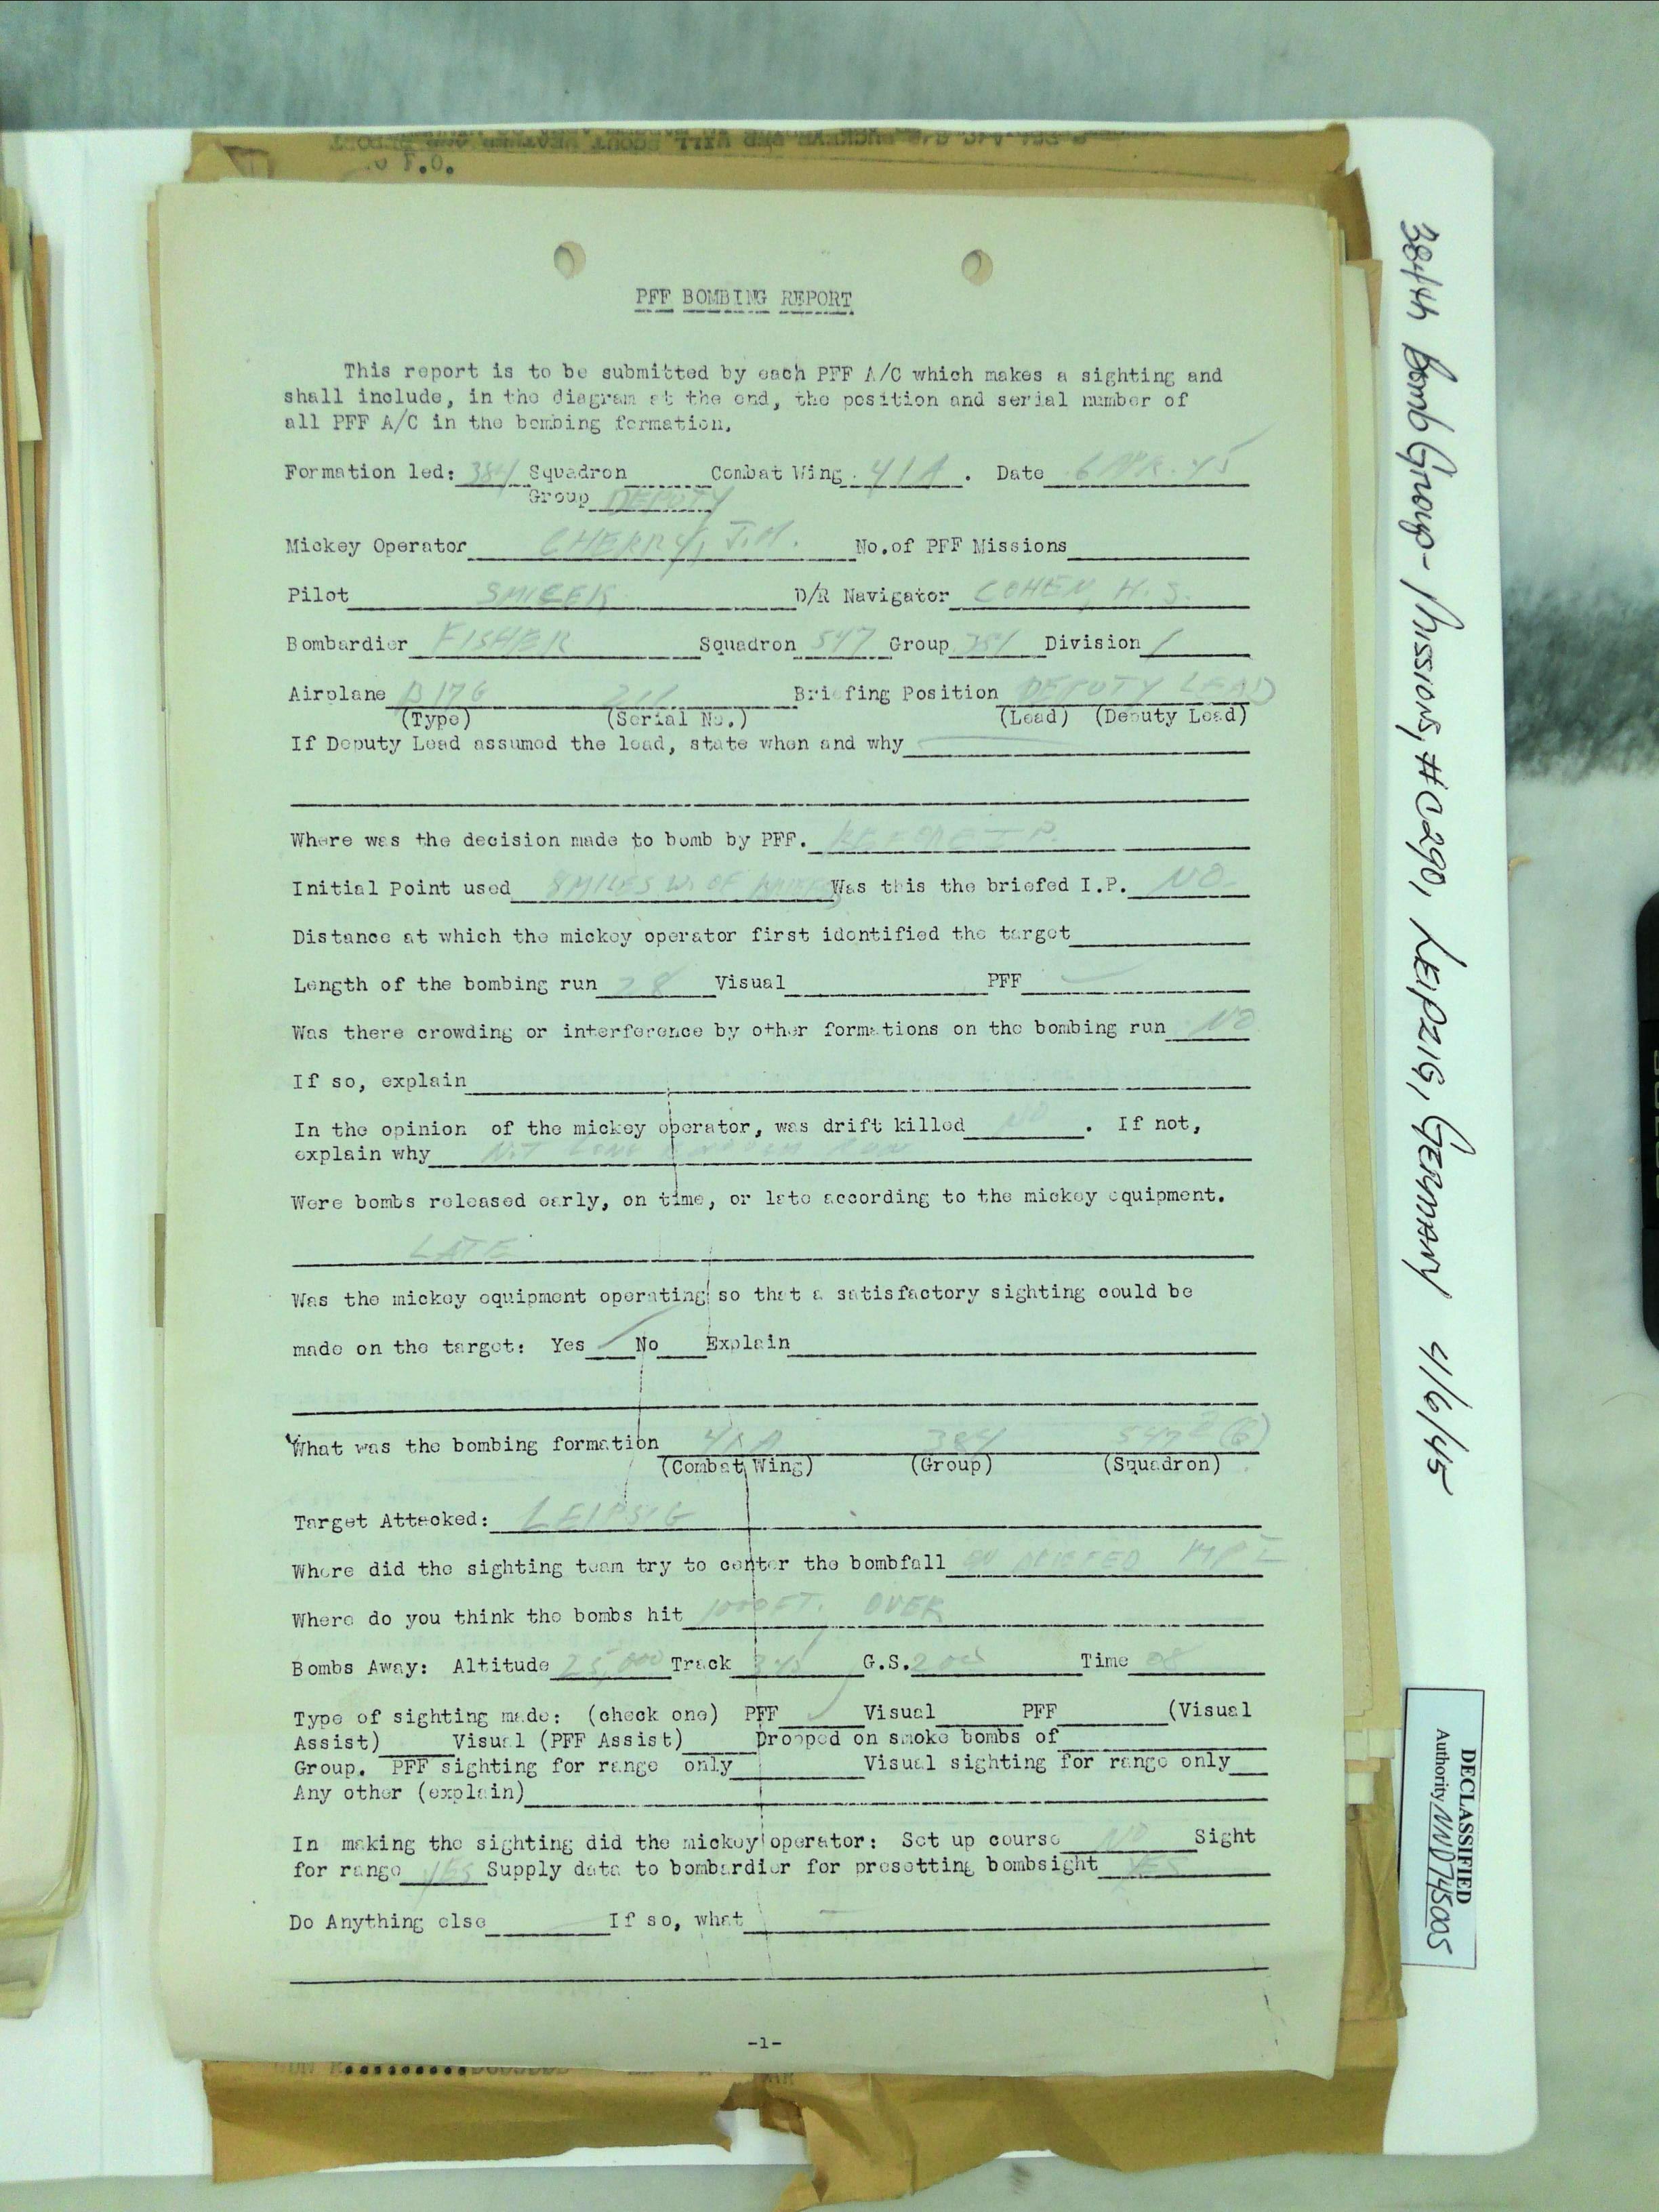 PFF BOMBING REPORT
This report is to be submitted by each PFF A/C which makes a sighting and
shall include, in the diagram at the end, the position and serial number of
all PFF A/C in the bombing formation.
Formation led: 384 Squadron Combat Wing 41A. Date 6 APR. 45
Group DEPUTY
Mickey Operator CHERRY, J.M. No.of PFF Missions
Pilot D/R Navigator COHEN, H. S.
Bombardier FISHER Squadron 547 Group 384 Division 1
Airplane B17G Briefing Position DEPUTY LEAD
(Type) (Serial No.) (Lead) (Deputy Lead)
If Deputy Lead assumed the lead, state when and why
Where was the decision made to bomb by PFF. BEFORE I.P.
Initial Point used 8 MILES W. OF Was this the briefed I.P. NO
Distance at which the mickey operator first identified the target
Length of the bombing run 28 Visual PFF
Was there crowding or interference by other formations on the bombing run NO
If so, explain
In the opinion of the mickey operator, was drift killed NO. If not,
explain why NOT LONG ENOUGH RUN
Were bombs released early, on time, or late according to the mickey equipment.
LATE
Was the mickey equipment operating so that a satisfactory sighting could be
made on the target: Yes No Explain
What was the bombing formation 41A 384
(Combat Wing) (Group) (Squadron)
Target Attacked: LEIPSIG
Where did the sighting team try to center the bombfall ON BRIEFED MPI
Where do you think the bombs hit 1000 FT. OVER
Bombs Away: Altitude 25,000 Track 345 G.S. Time 08
Type of sighting made: (check one) PFF Visual PFF (Visual
Assist) Visual (PFF Assist) Dropped on smoke bombs of
Group. PFF sighting for range only Visual sighting for range only
Any other (explain)
In making the sighting did the mickey operator: Set up course NO Sight
for range YES Supply data to bombardier for presetting bombsight YES
Do Anything else If so, what
-1-
384th Bomb Group - Missions, #0290, LEIPZIG, GERMANY 4/6/45
DECLASSIFIED
Authority NND 745005